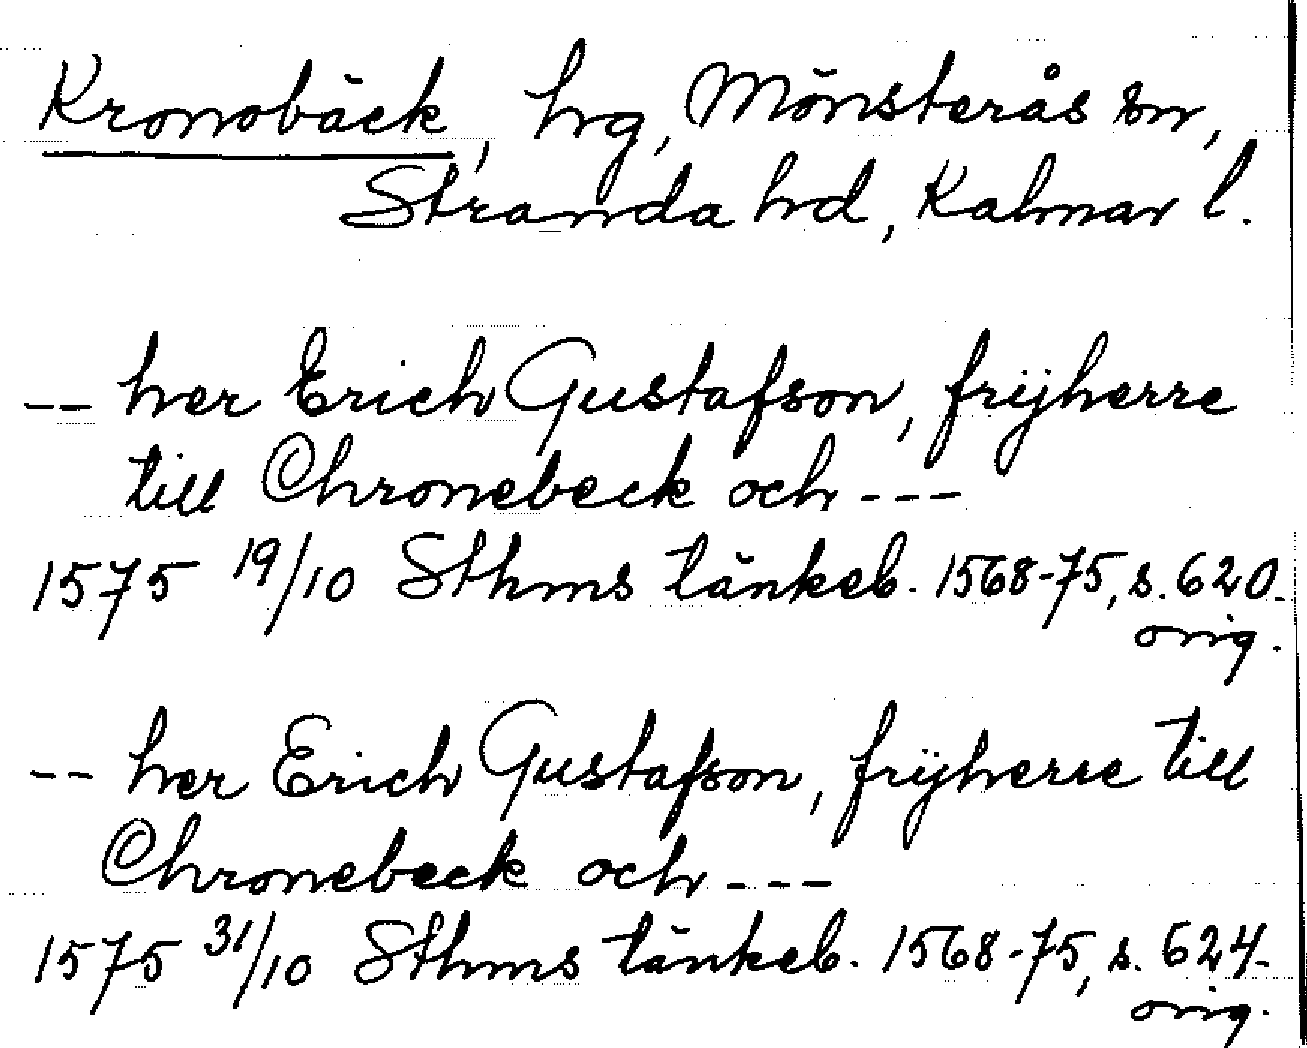 Kronobäck, hrg, Mönsterås sn,
Stranda hd, Kalmar l.
-- her Erich Gustafson, frijherre
till Chronebeck och ---
1575 19/10 Sthms tänkeb. 1568-75, s. 620.
orig.
-- her Erich Gustafson, frijherre till
Chronebeck och ---
1575 31/10 Sthms tänkeb. 1568-75, s. 624.
orig.